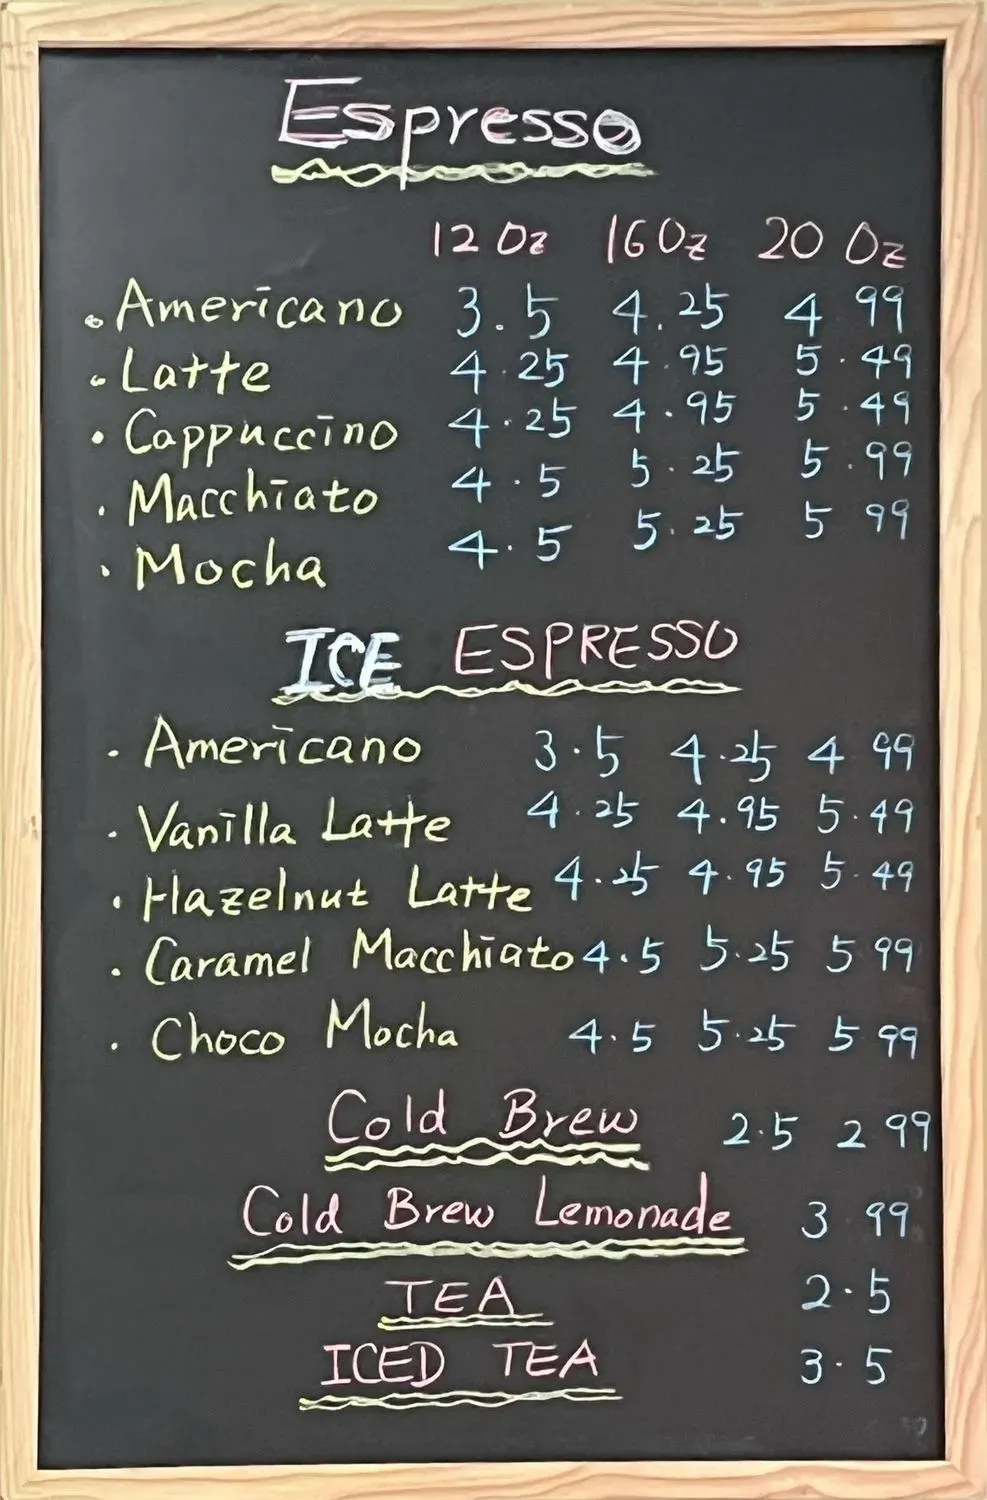 Espresso
12 Oz 16 Oz 20 Oz
• Americano 3.5 4.25 4 99
• Latte 4.25 4.95 5.49
• Cappuccino 4.25 4.95 5.49
• Macchiato 4.5 5.25 5.99
• Mocha 4.5 5.25 5 99
ICE ESPRESSO
• Americano 3.5 4.25 4 99
• Vanilla Latte 4.25 4.95 5.49
• Hazelnut Latte 4.25 4.95 5.49
• Caramel Macchiato 4.5 5.25 5 99
• Choco Mocha 4.5 5.25 5 99
Cold Brew 2.5 2 99
Cold Brew Lemonade 3 99
TEA 2.5
ICED TEA 3.5